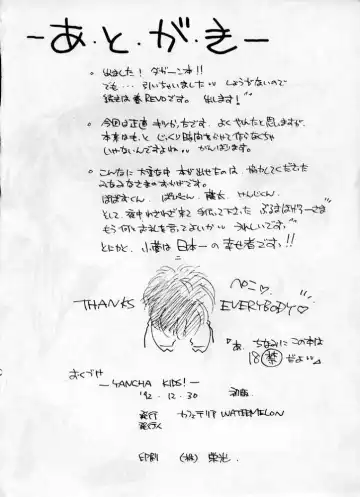 ーあ・と・が・きー
。出ました! ダガーン本!!
でも… 引いちゃいました しょうがないので
続きは春REVOです。 出します!
。今回は正直 キツかったです。よくやったと思いますが、
本来はもっと じっくり時間をかけて作らなくちゃ
いけないんですよね がんばります。
。こんなに大変な中 本が出せたのは、協力してくださった
みなみなさまのおかげです。
そして夜中わざわざ来て 手伝って下さった ぶるまはげろーさま
もう何とお礼を言ってよいか うれしいです。
とにかく、小菅は 日本一の幸せ者です!!
ぺこ♡
THANKS EVERYBODY♡
『あ、ちなみに この本は
18禁だよ』
おくづけ
ーYANCHA KIDS!ー
'92.12.30 初版
発行 カフェテリアWATERMELON
発行人
印刷 (株) 栄光.